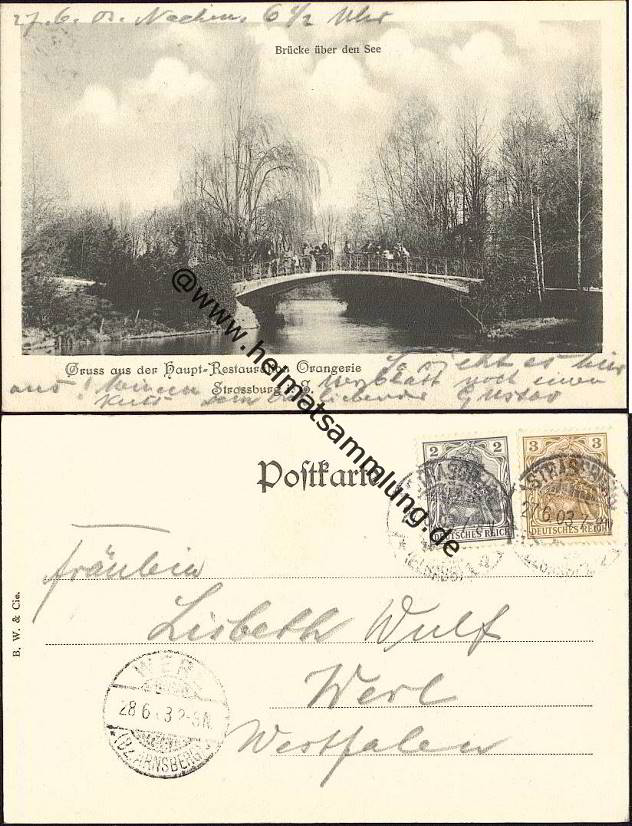 27.6.03. Nachm. 6 1/2 Uhr
Brücke über den See
Gruss aus der Haupt-Restauration Orangerie
Strassburg i. E.
So sieht es hier
aus! Meinen
noch einen
Kuss Gustav
@www.heimatsammlung.de
Postkarte
2 2
DEUTSCHES REICH
3 3
DEUTSCHES REICH
STRASSBURG
27.6.03
Fräulein
Lisbeth Wulf
Werl
Westfalen
B. W. & Cie.
WERL
28 6 03 2-3N
(BZ. ARNSBERG)